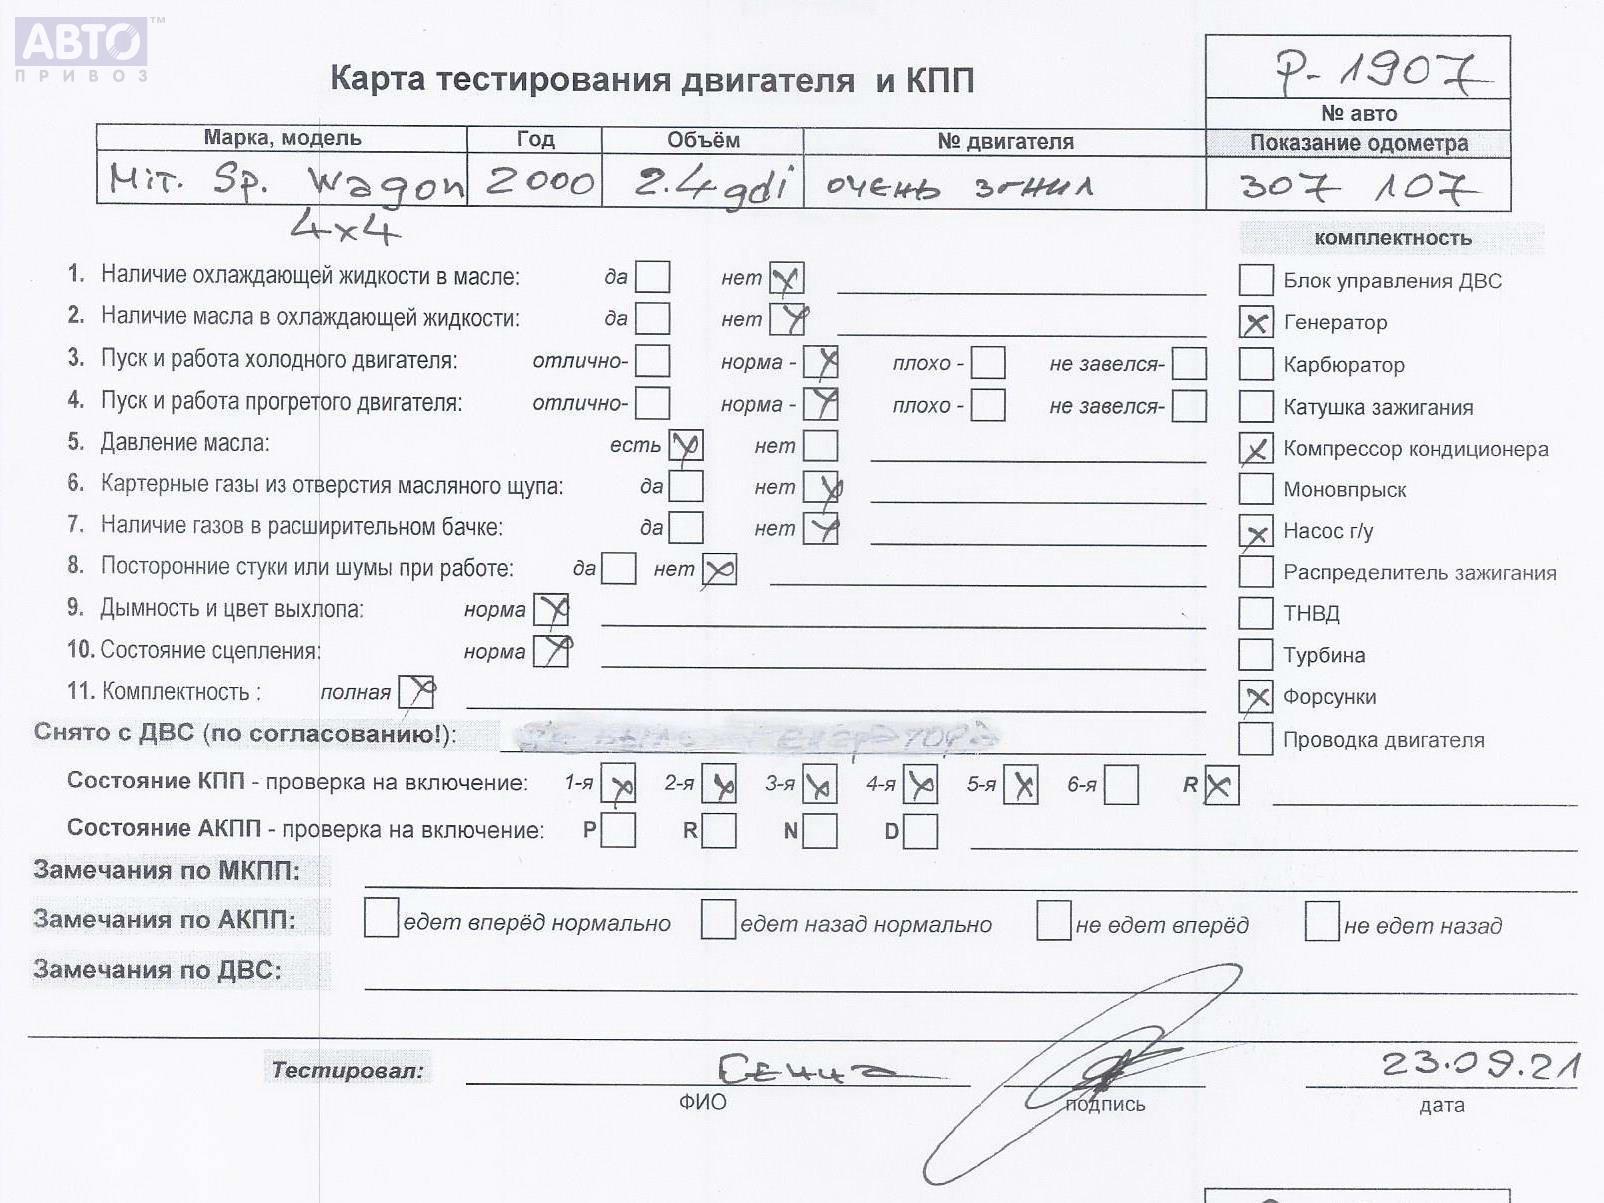 АВТО™
ПРИВОЗ
Карта тестирования двигателя и КПП
P-1907
№ авто
Марка, модель Год Объём № двигателя Показание одометра
Mit. Sp. Wagon 2000 2.4 gdi очень згнил 307 107
4x4
комплектность
1. Наличие охлаждающей жидкости в масле: да нет
Блок управления ДВС
2. Наличие масла в охлаждающей жидкости: да нет
Генератор
3. Пуск и работа холодного двигателя: отлично- норма - плохо - не завелся-
Карбюратор
4. Пуск и работа прогретого двигателя: отлично- норма - плохо - не завелся-
Катушка зажигания
5. Давление масла: есть нет
Компрессор кондиционера
6. Картерные газы из отверстия масляного щупа: да нет
Моновпрыск
7. Наличие газов в расширительном бачке: да нет
Насос г/у
8. Посторонние стуки или шумы при работе: да нет
Распределитель зажигания
9. Дымность и цвет выхлопа: норма
ТНВД
10. Состояние сцепления: норма
Турбина
11. Комплектность : полная
Форсунки
Снято с ДВС (по согласованию!):
Проводка двигателя
Состояние КПП - проверка на включение: 1-я 2-я 3-я 4-я 5-я 6-я R
Состояние АКПП - проверка на включение: P R N D
Замечания по МКПП:
Замечания по АКПП: едет вперёд нормально едет назад нормально не едет вперёд не едет назад
Замечания по ДВС:
Тестировал: 23.09.21
ФИО подпись дата